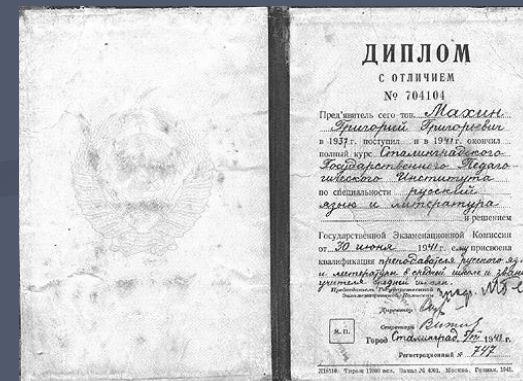 ДИПЛОМ
С ОТЛИЧИЕМ
№ 704104
Пред'явитель сего тов. Махин
Григорий Григорьевич
в 1937 г. поступил и в 1941 г. окончил
полный курс Сталинградского
Государственного Педаго-
гического Института
по специальности русский
язык и литература
и решением
Государственной Экзаменационной Комиссии
от 30 июня 1941 г. ему присвоена
квалификация преподавателя русского яз.
и литературы в средней школе и звание
учителя средней школы.
Председатель Государственной
Экзаменационной Комиссии
Директор
Секретарь
М. П.
Город Сталинград, 1941 г.
Регистрационный № 747